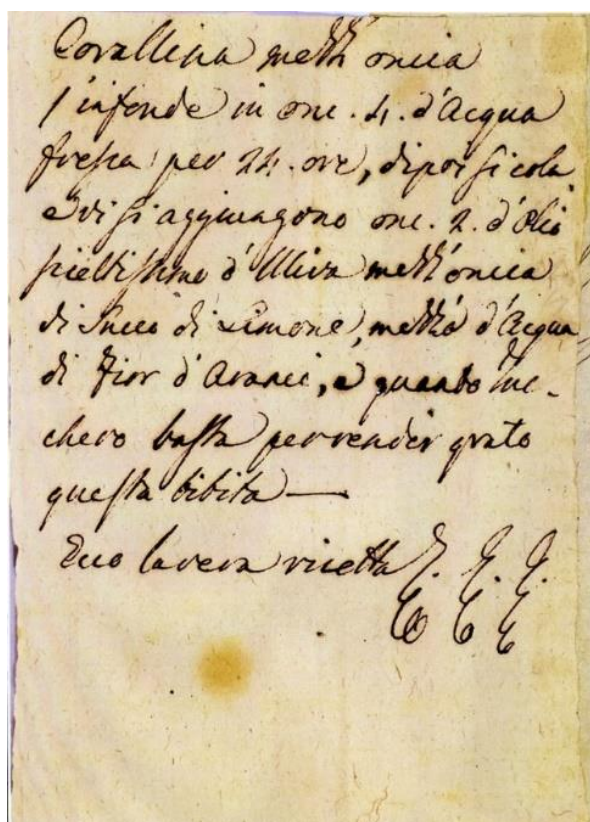 Corallina mezz' oncia
s' infonde in onc. 4. d'Acqua
fresca per 24. ore, dipoi si cola
e vi si aggiungono onc. 2. d'Olio
sceltissimo d'Uliva mezz'oncia
di Succo di Limone, mezza d'Acqua
di Fior d'Aranci, e quando zuc-
chero basta per render grato
questa bibita —
Ecco la vera ricetta